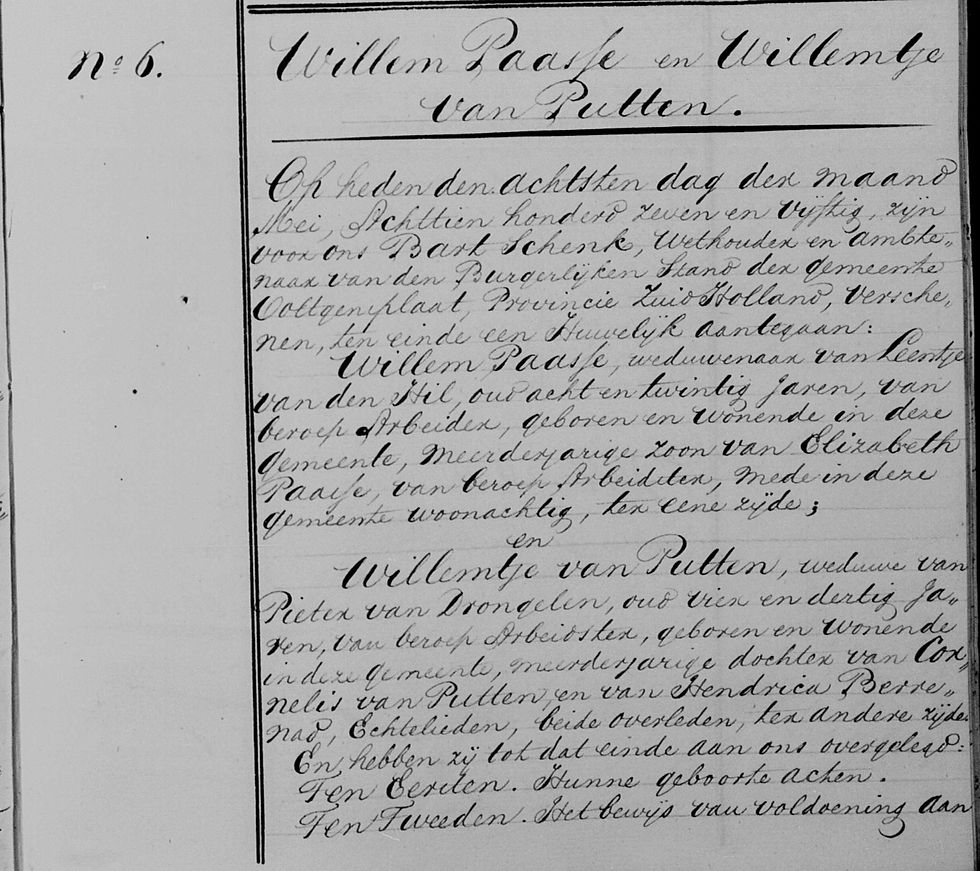 No. 6.
Willem Paasse en Willemtje
van Putten.
Op heden den achtsten dag der maand
Mei, Achttien honderd zeven en vijftig, zijn
voor ons Bart Schenk, Wethouder en ambte„
naar van den Burgerlijken Stand der gemeente
Ooltgensplaat, Provincie Zuid Holland, versche„
nen, ten einde een Huwelijk aantegaan:
Willem Paasse, weduwenaar van Leentje
van den Hil, oud acht en twintig Jaren, van
beroep Arbeider, geboren en wonende in deze
gemeente, meerderjarige zoon van Elizabeth
Paasse, van beroep Arbeidster, mede in deze
gemeente woonachtig, ter eene zijde;
en
Willemtje van Putten, weduwe van
Pieter van Drongelen, oud vier en dertig Ja„
ren, van beroep Arbeidster, geboren en wonende
in deze gemeente, meerderjarige dochter van Cor„
nelis van Putten, en van Hendrica Berre„
nad, Echtelieden, beide overleden, ter andere zijde.
En hebben zij tot dat einde aan ons overgelegd:
Ten Eersten. Hunne geboorte acten.
Ten Tweeden. Het bewijs van voldoening aan